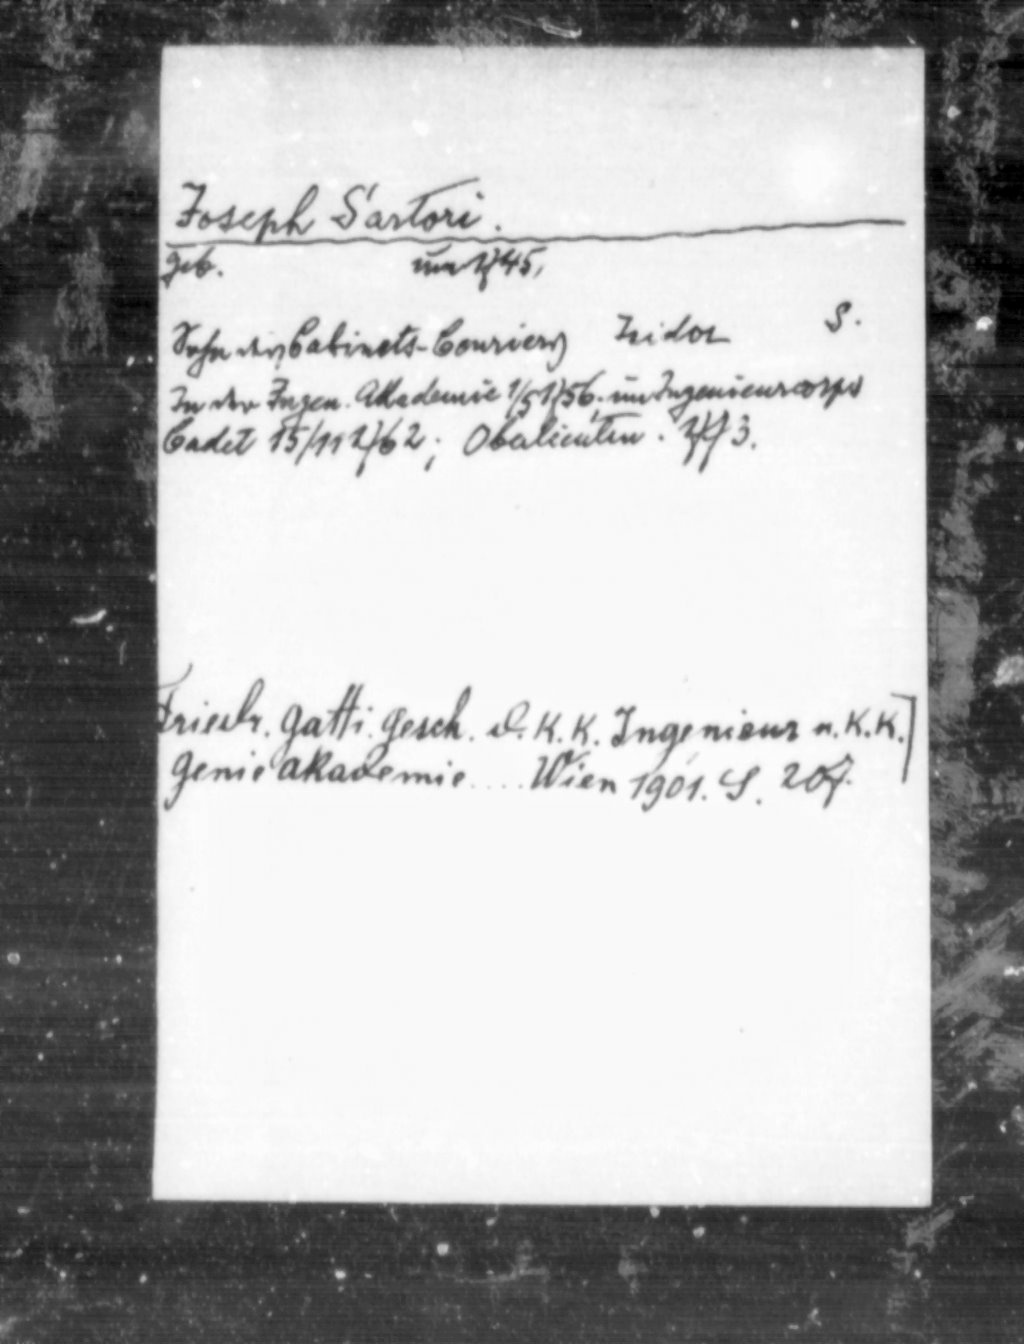 Joseph Sartori.
geb. um 1745,
Sohn des Cabinets-Couriers Isidor S.
In der Ingen. Akademie 1/5 1756. im Ingenieurcorps
Cadet 15/11 1762; Oberlieuten. 1773.
Friedr. Gatti. Gesch. d. K. K. Ingenieur u. K. K.]
Genie Akademie .... Wien 1901. S. 207.